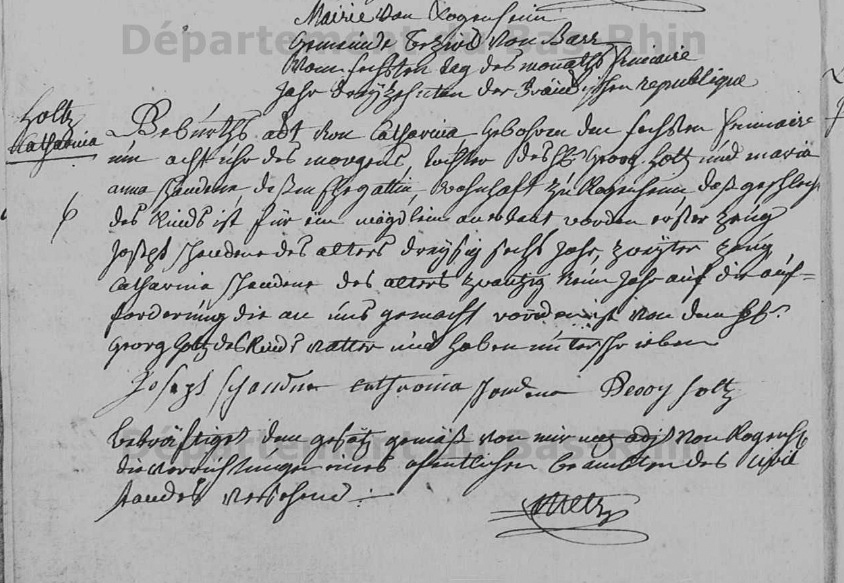 Mairie von Kogenheim
Gemeinde bezirks von Barr
Vom sechsten tag des monaths frimaire
Jahr dreyzehnten der Fränckischen republique
Holtz
Catharina
Geburths act von Catharina gebohren den sechsten frimaire
um acht uhr des morgens, tochter des Georg Holtz und maria
anna Schandene, dessen Ehegattin, wohnhaft zu Kogenheim das geschlecht
6
des Kinds ist für ein mägdlein anerkant worden erster zeug
Joseph Schandene des alters dreysig sechs Jahr, zweyter zeug
Catharina Schandene des alters zwantzig neun Jahr auf die auf=
forderung die an uns gemacht worden ist von dem
georg Holtz des Kinds vatter und haben unterschrieben
Joseph Schandne catharina Schandena Holtz
bekräftiget dem gesetz gemäß von mir adjt von Kogenh
die verrichtungen eines ofentlichen beambten des Civil
standes versehend
Metz
Département du Bas-Rhin
Département du Bas-Rhin